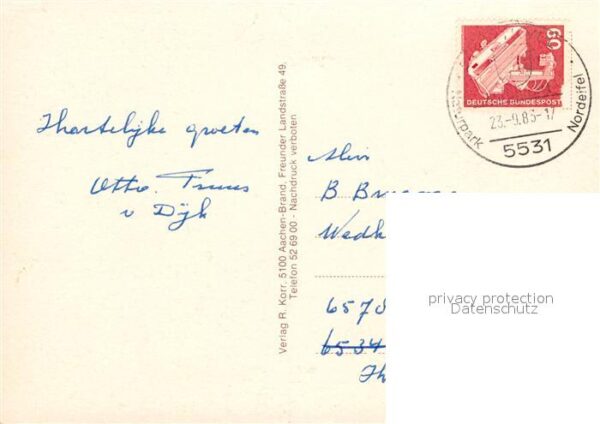 Hartelijke groeten
Otto. Truus
v Dijk
Verlag R. Korr. 5100 Aachen-Brand, Freunder Landstraße 49.
Telefon 52 69 00 - Nachdruck verboten
60
DEUTSCHE BUNDESPOST
Naturpark Nordeifel
5531
B
6570
6534
privacy protection
Datenschutz